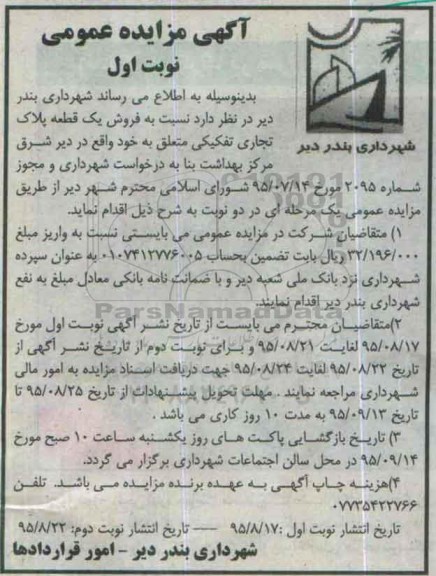 آگهی مزایده عمومی
نوبت اول
شهرداری بندر دیر
بدینوسیله به اطلاع می رساند شهرداری بندر
دیر در نظر دارد نسبت به فروش یک قطعه پلاک
تجاری تفکیکی متعلق به خود واقع در دیر شرق
مرکز بهداشت بنا به درخواست شهرداری و مجوز
شماره ۲۰۹۵ مورخ ۹۵/۰۷/۱۴ شورای اسلامی محترم شهر دیر از طریق
مزایده عمومی یک مرحله ای در دو نوبت به شرح ذیل اقدام نماید.
۱) متقاضیان شرکت در مزایده عمومی می بایستی نسبت به واریز مبلغ
۳۲/۱۹۶/۰۰۰ ریال بابت تضمین بحساب ۰۱۰۷۴۱۲۷۷۶۰۰۵ به عنوان سپرده
شهرداری نزد بانک ملی شعبه دیر و با ضمانت نامه بانکی معادل مبلغ به نفع
شهرداری بندر دیر اقدام نمایند.
۲)متقاضیان محترم می بایست از تاریخ نشر آگهی نوبت اول مورخ
۹۵/۰۸/۱۷ لغایت ۹۵/۰۸/۲۱ و برای نوبت دوم از تاریخ نشر آگهی از
تاریخ ۹۵/۰۸/۲۲ لغایت ۹۵/۰۸/۲۴ جهت دریافت اسناد مزایده به امور مالی
شهرداری مراجعه نمایند . مهلت تحویل پیشنهادات از تاریخ ۹۵/۰۸/۲۵ تا
تاریخ ۹۵/۰۹/۱۳ به مدت ۱۰ روز کاری می باشد .
۳) تاریخ بازگشایی پاکت های روز یکشنبه ساعت ۱۰ صبح مورخ
۹۵/۰۹/۱۴ در محل سالن اجتماعات شهرداری برگزار می گردد.
۴)هزینه چاپ آگهی به عهده برنده مزایده می باشد. تلفن
۰۷۷۳۵۴۲۲۷۶۶
تاریخ انتشار نوبت اول :۹۵/۸/۱۷ — تاریخ انتشار نوبت دوم: ۹۵/۸/۲۲
شهرداری بندر دیر - امور قراردادها
ParsNamadData